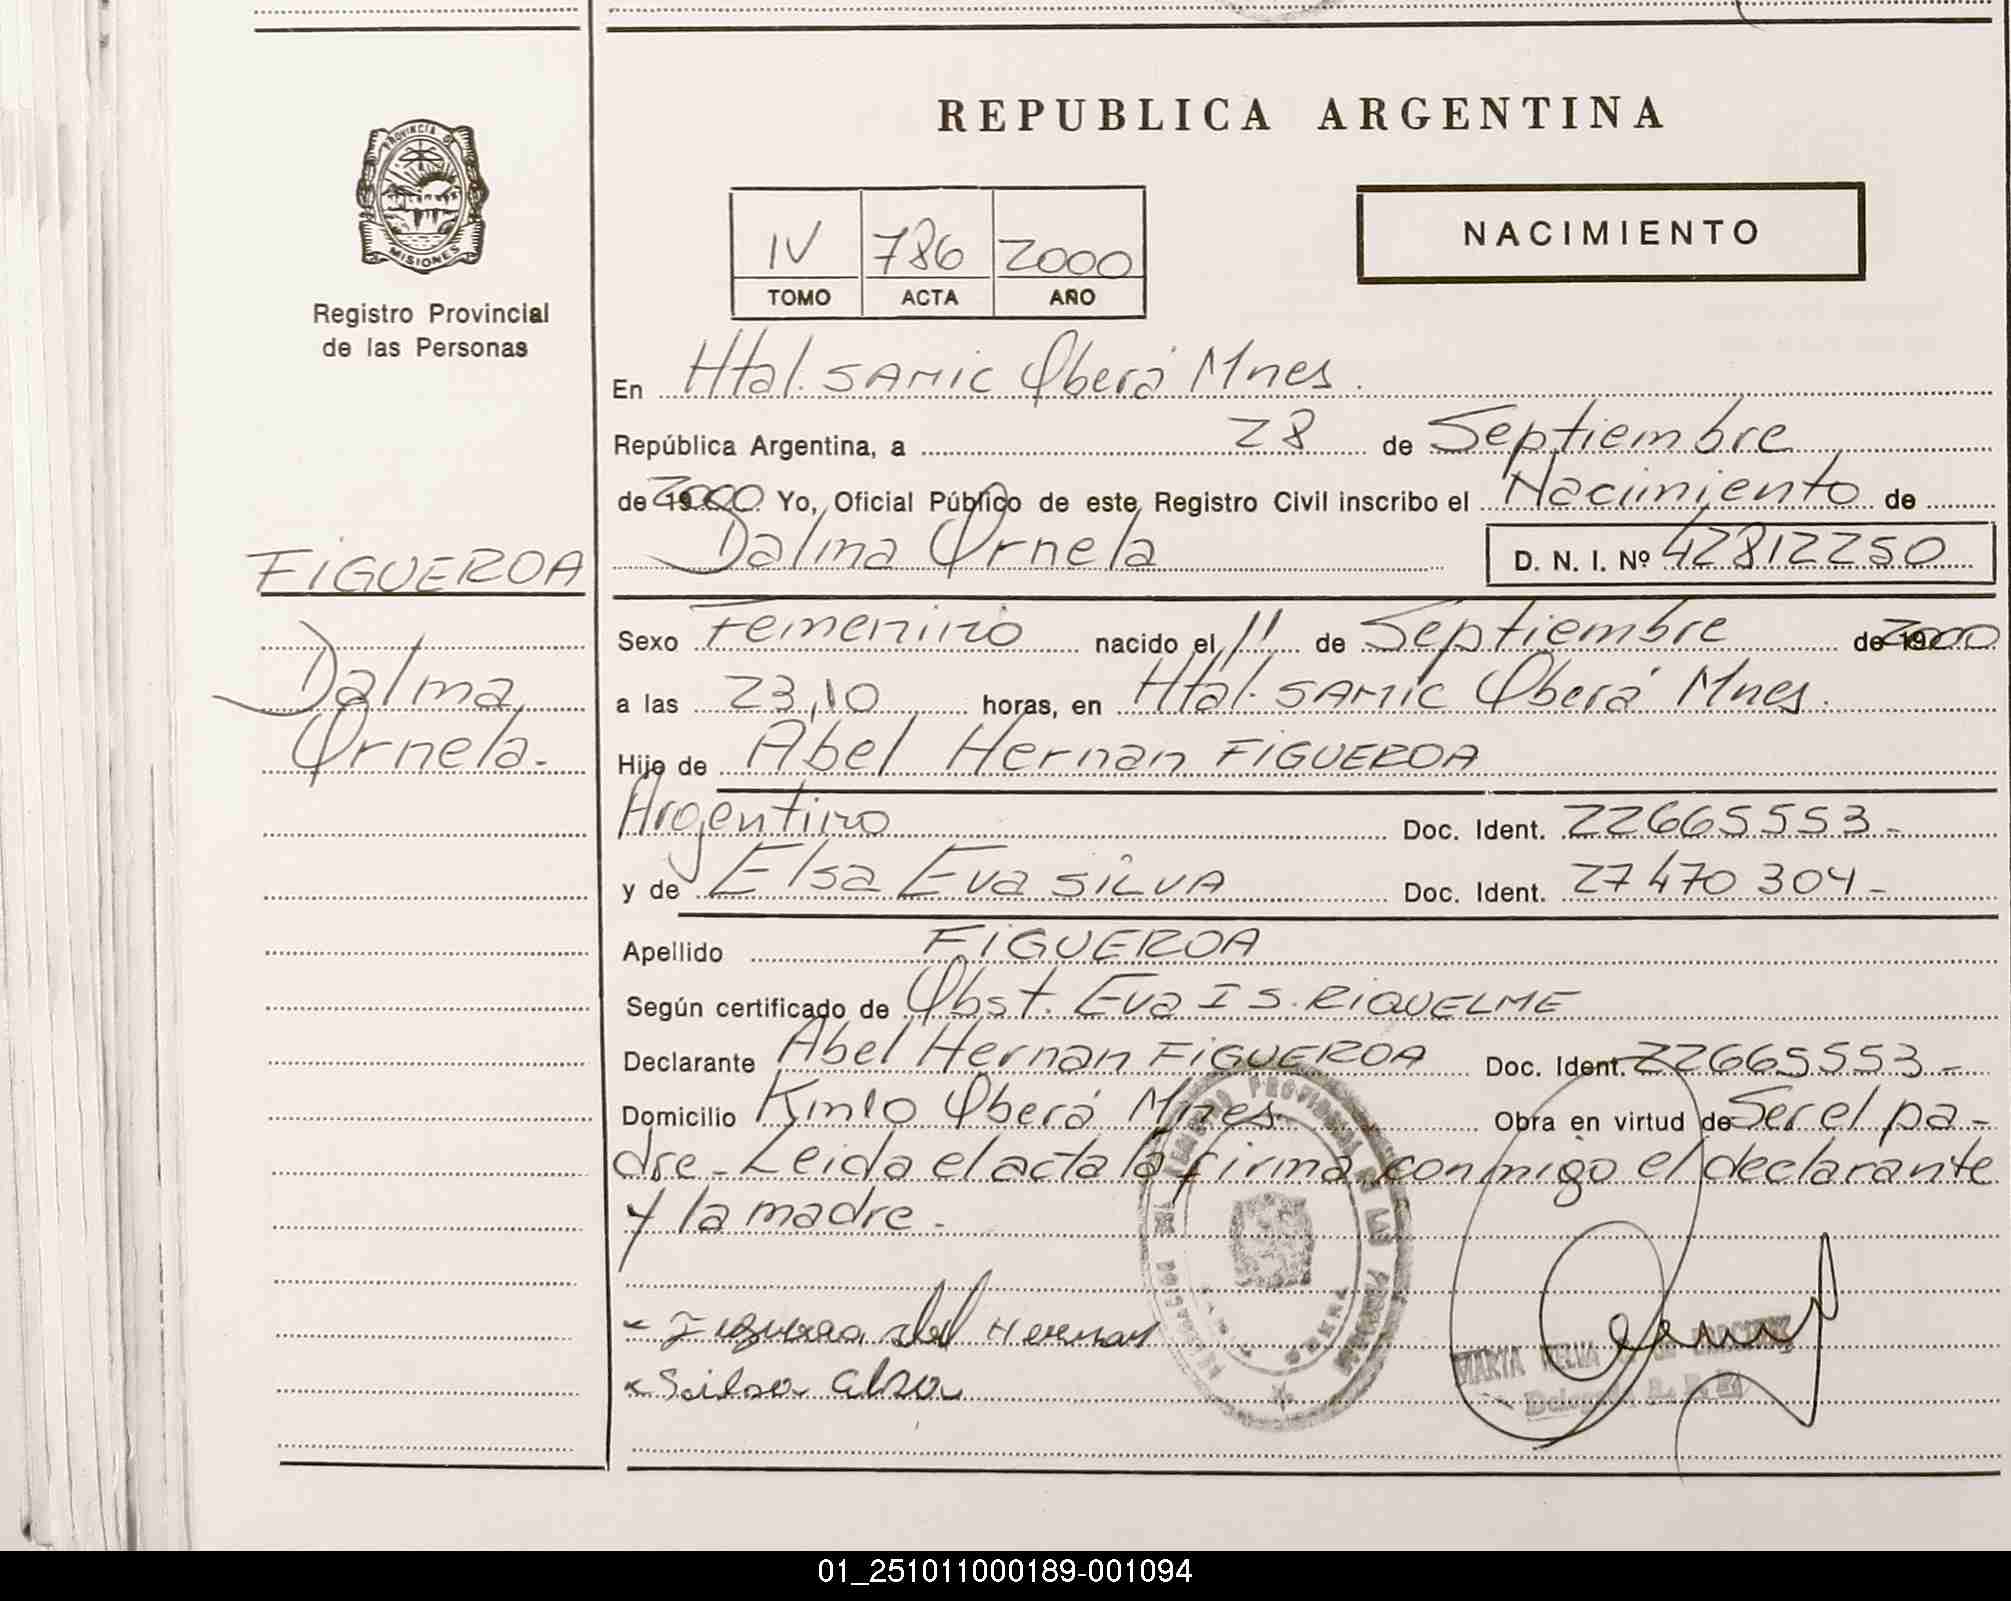 PROVINCIA DE
MISIONES
Registro Provincial
de las Personas
FIGUEROA
Dalma
Ornela.
REPUBLICA ARGENTINA
IV 786 2000
TOMO ACTA AÑO
NACIMIENTO
En Htal. SAMIC Oberá Mnes.
República Argentina, a 28 de Septiembre
de 2000 Yo, Oficial Público de este Registro Civil inscribo el Nacimiento de
Dalma Ornela D. N. I. Nº 42812250
Sexo Femenino nacido el 11 de Septiembre de 2000
a las 23,10 horas, en Htal. SAMIC Oberá Mnes.
Hijo de Abel Hernan FIGUEROA
Argentino Doc. Ident. 22665553-
y de Elsa Eva SILVA Doc. Ident. 27470304-
Apellido FIGUEROA
Según certificado de Obst. Eva I S. RIQUELME
Declarante Abel Hernan FIGUEROA Doc. Ident. 22665553-
Domicilio Km10 Oberá Mnes. Obra en virtud de Ser el pa-
dre- Leida el acta la firma conmigo el declarante
y la madre-
Figueroa Abel Hernan
Silva Elsa
MARTA
Delegada R. P.
01_251011000189-001094